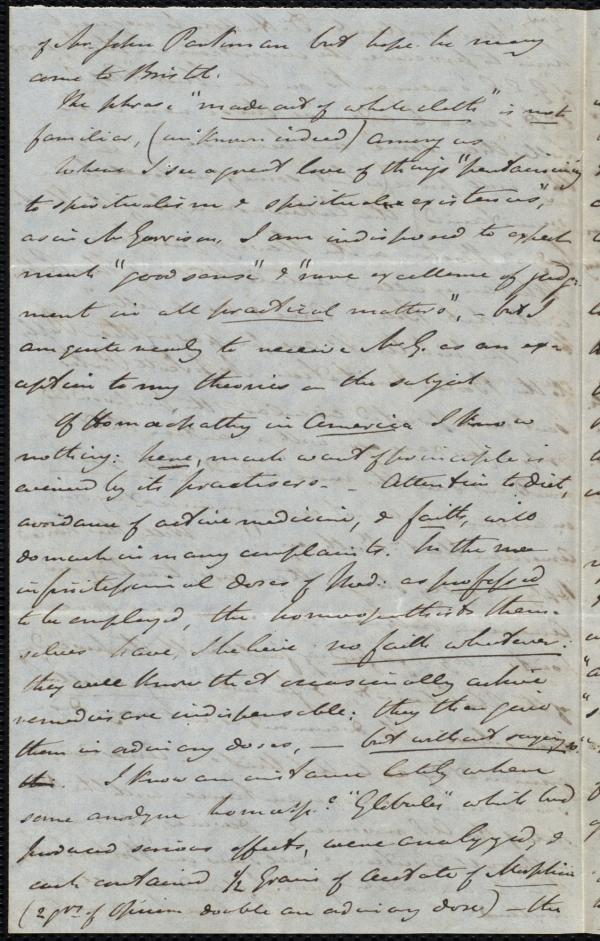 of Mr. John Parkman but hope he may
come to Bristol.
The phrase "made out of whole cloth" is not
familiar, (unknown indeed) among us
Where I see a great love of things "pertaining
to spiritualism & spiritual existences",
as in Mr Garrison, I am indisposed to expect
much "good sense" & "rare excellence of judg-
ment in all practical matters", - but I
am quite ready to receive Mr G. as an ex-
ception to my theories on the subject
Of Homœopathy in America I know
nothing: here, much want of principle is
evinced by its practisers. - Attention to diet,
avoidance of active medicine, & faith, will
do much in many complaints. In the
infinitesimal doses of Med: as professed
to be employed, the homœopathists them-
selves have, I believe no faith whatever:
they well know that occasionally active
remedies are indispensable; they then give
them in ordinary doses, — but without saying so.
I know an instance lately where
some anodyne homœop: "Globules" which had
produced serious effects, were analyzed, &
each contained ½ Grain of Acetate of Morphia
(2 grs of Opium double an ordinary dose) - the